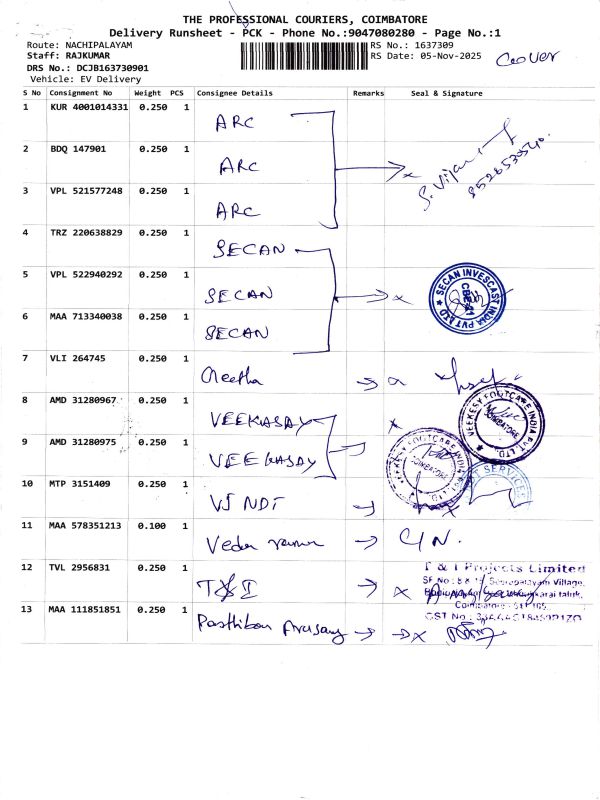 THE PROFESSIONAL COURIERS, COIMBATORE
Delivery Runsheet - PCK - Phone No.:9047080280 - Page No.:1
Route: NACHIPALAYAM
RS No.: 1637309
Staff: RAJKUMAR
RS Date: 05-Nov-2025
DRS No.: DCJB163730901
Vehicle: EV Delivery
S No Consignment No Weight PCS Consignee Details Remarks Seal & Signature
1 KUR 4001014331 0.250 1 ARC
2 BDQ 147901 0.250 1 ARC
3 VPL 521577248 0.250 1 ARC
4 TRZ 220638829 0.250 1 SECAN
5 VPL 522940292 0.250 1 SECAN
SECAN INVESCAST INDIA PVT LTD
6 MAA 713340038 0.250 1 SECAN
7 VLI 264745 0.250 1
8 AMD 31280967 0.250 1 VEEKASAY
VEEKESY FOOTCARE INDIA PVT. LTD. COIMBATORE
9 AMD 31280975 0.250 1 VEEKASAY
VEEKESY FOOTCARE INDIA PVT. LTD. COIMBATORE
10 MTP 3151409 0.250 1
SERVICES
11 MAA 578351213 0.100 1
12 TVL 2956831 0.250 1 T&I
T & I Projects Limited
13 MAA 111851851 0.250 1